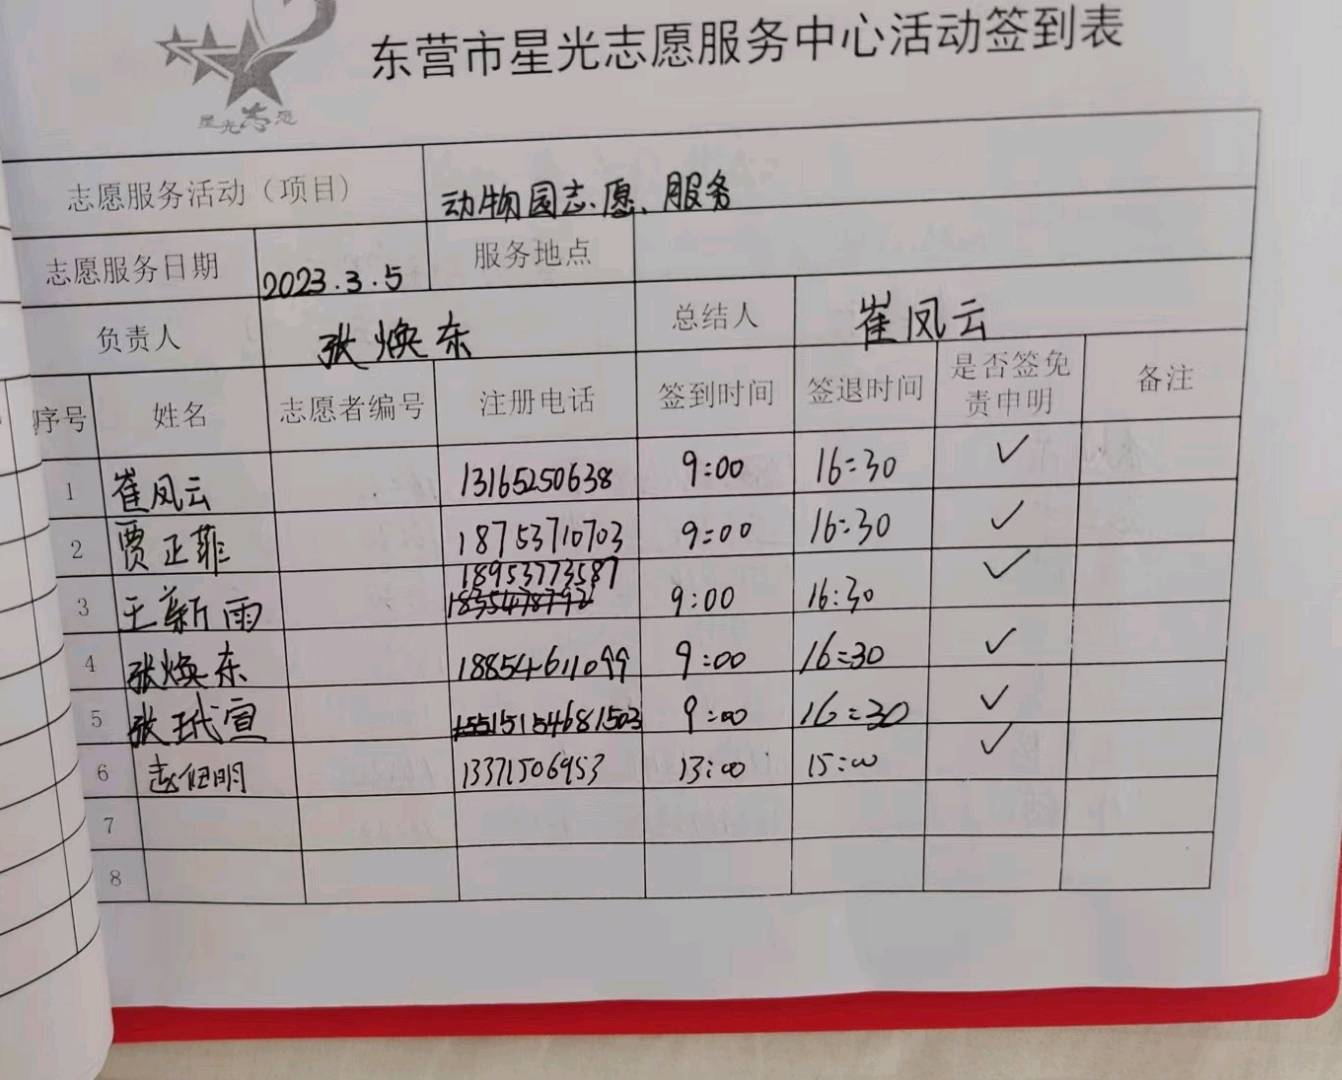 东营市星光志愿服务中心活动签到表
星光志愿
志愿服务活动（项目） 动物园志愿服务
志愿服务日期 2023.3.5 服务地点
负责人 张焕东 总结人 崔凤云
序号 姓名 志愿者编号 注册电话 签到时间 签退时间 是否签免责申明 备注
1 崔凤云 13165250638 9:00 16:30 ✓
2 贾正菲 18753710703 9:00 16:30 ✓
3 王新雨 18953773587 9:00 16:30 ✓
4 张焕东 18854611099 9:00 16:30 ✓
5 张玳宣 15154681503 9:00 16:30 ✓
6 13371506953 13:00 15:00 ✓
7
8